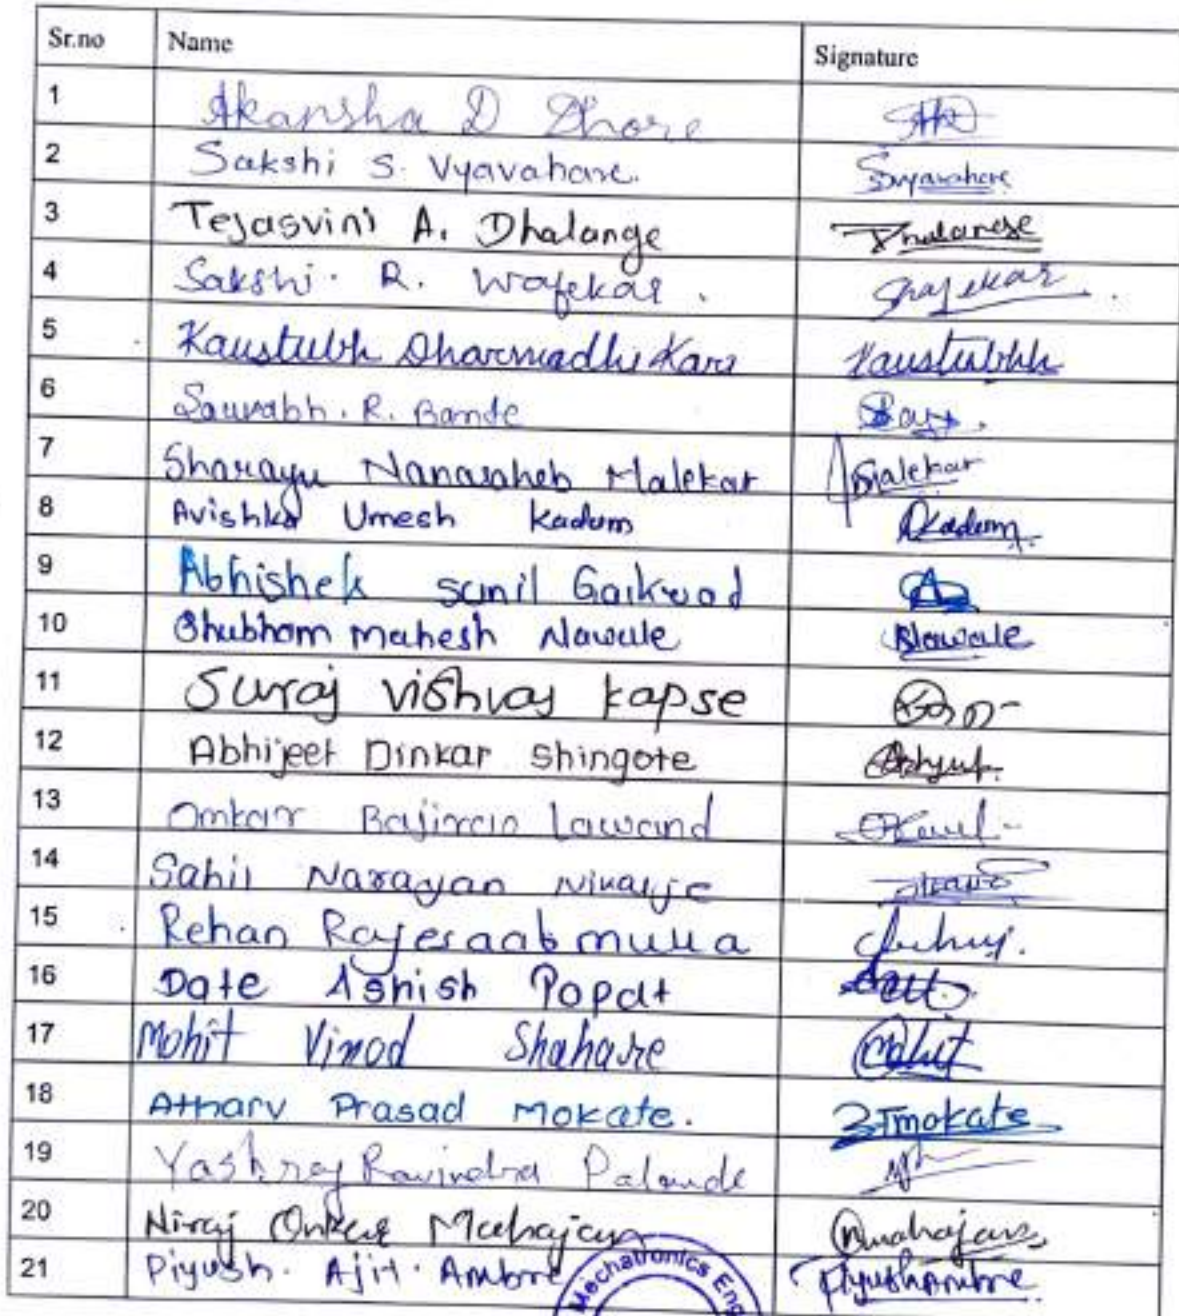 Sr.no Name Signature
1 Akansha D Dhore
2 Sakshi S. Vyavahare. Svyavahare
3 Tejasvini A. Dhalange Dhalange
4 Sakshi. R. Wafekar.
5 Kaustubh Dharmadhikari Kaustubhh
6 Saurabh. R. Bande
7 Sharayu Nanasaheb Malekar Malekar
8 Avishka Umesh Kadam AKadam
9 Abhishek sunil Gaikwad
10 Shubham Mahesh Nawale Nawale
11 Suraj Vishvas Kapse
12 Abhijeet Dinkar Shingote
13 Omkar Bajirao Lawand
14 Sahil Narayan Nikalje
15 Rehan Rajesaab mulla
16 Date Ashish Popat
17 Mohit Vinod Shahare Mohit
18 Atharv Prasad Mokate. mokate
19 Yashraj Ravindra Palande
20 Niraj Onkar Mahajan Nmahajan
21 Piyush. Ajit. Ambre PiyushAmbre
Mechatronics Eng